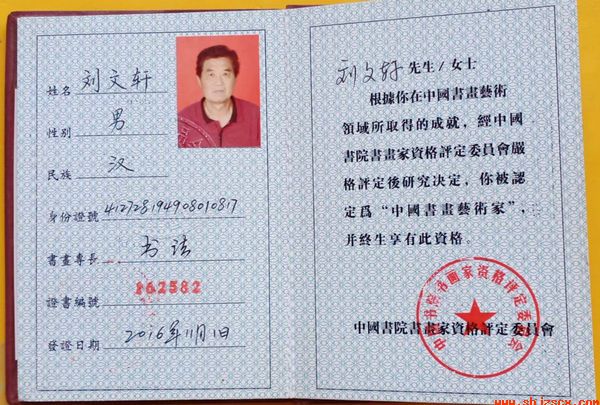 姓名 刘文轩
性别 男
民族 汉
身份證號 412728194908010817
書畫專長 书法
證書編號 162582
發證日期 2016年11月1日
刘文轩 先生/女士
根據你在中國書畫藝術
領域所取得的成就，經中國
書院書畫家資格評定委員會嚴
格評定後研究决定，你被認
定爲“中國書畫藝術家”，
并終生享有此資格。
中国书院书画家资格评定委员会
中國書院書畫家資格評定委員會
www.shjzscx.com